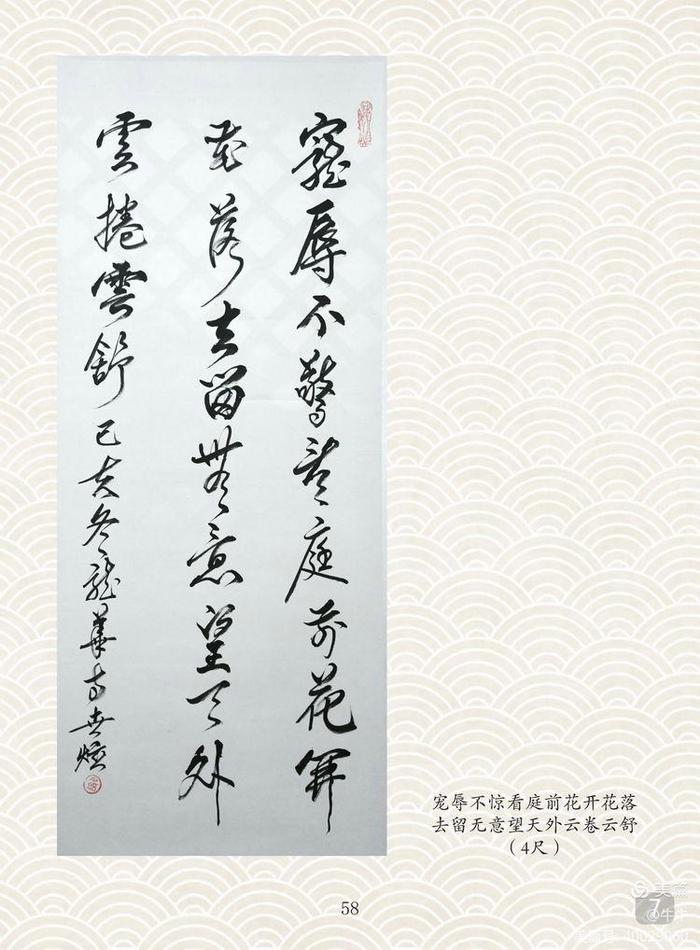 寵辱不驚看庭前花開
花落去留無意望天外
雲捲雲舒己亥冬龍華寺世燈
宠辱不惊看庭前花开花落
去留无意望天外云卷云舒
（4尺）
58
美篇
7
@牛牛